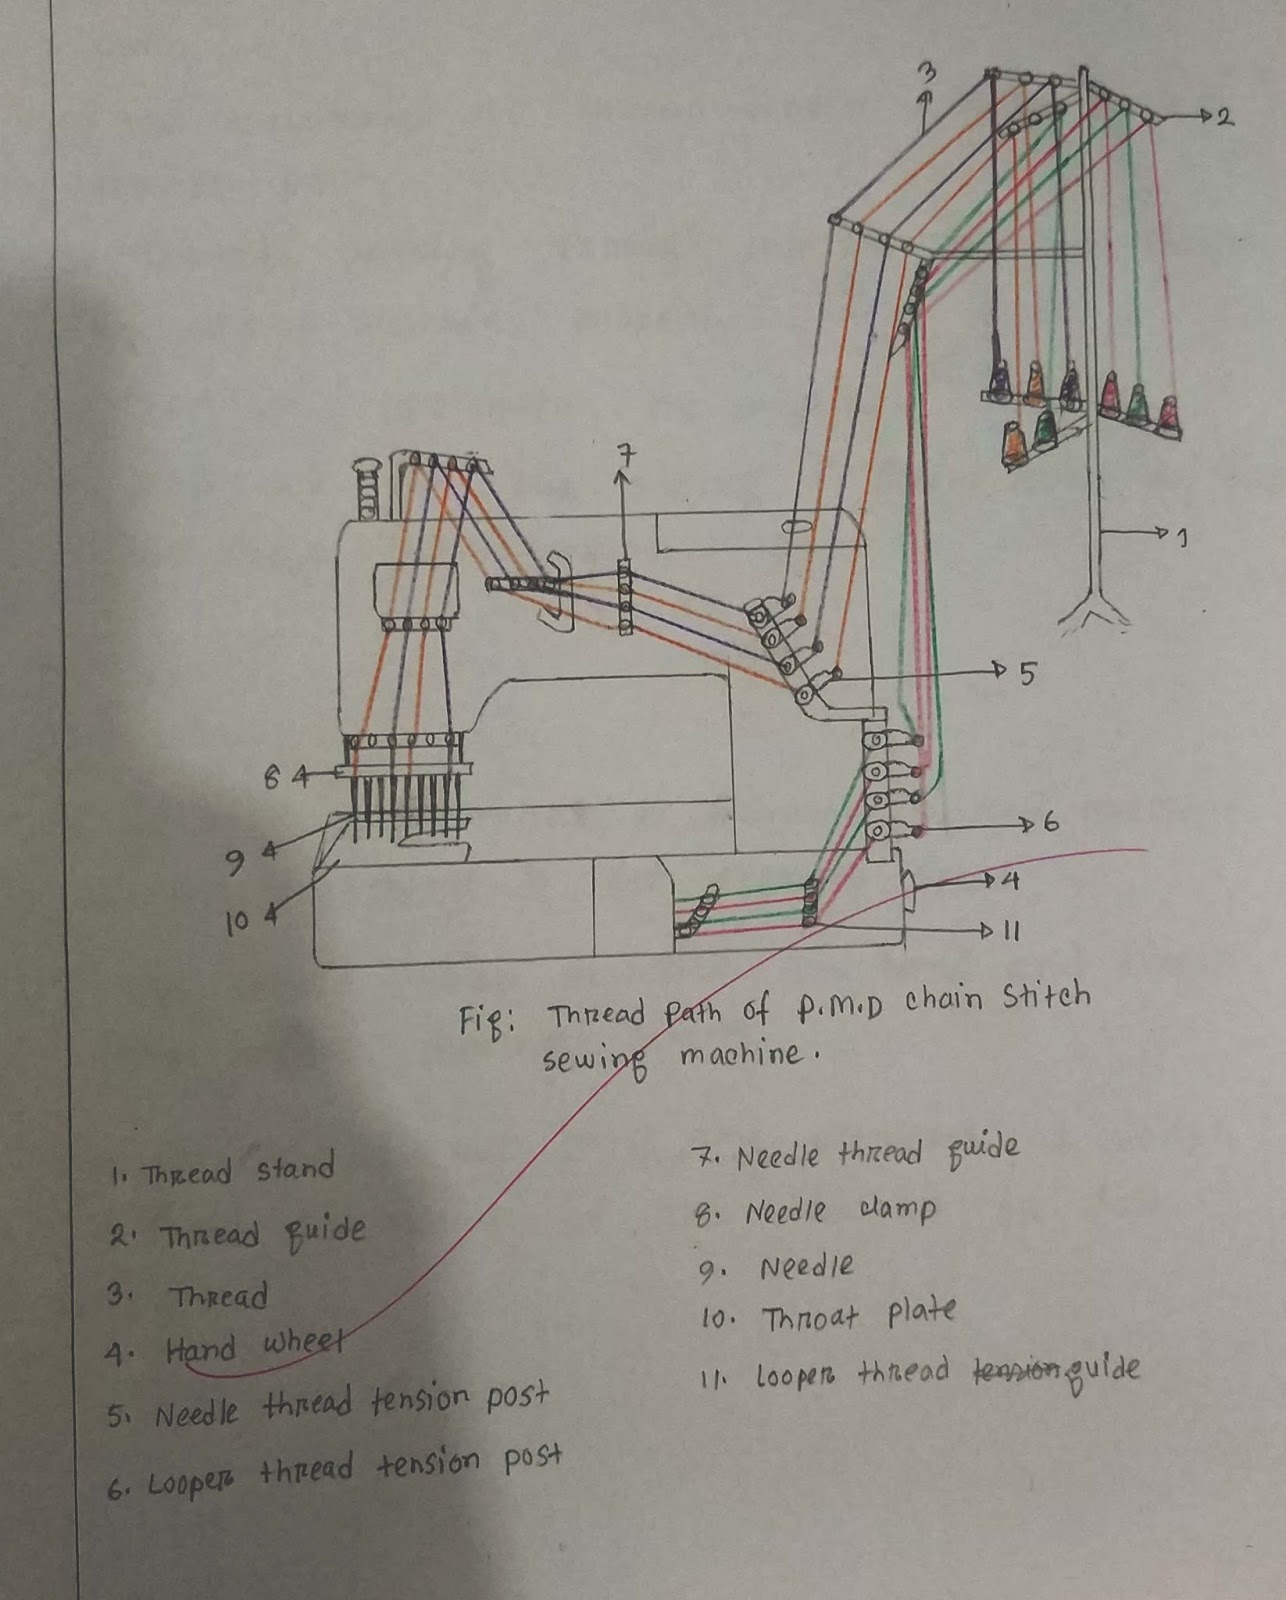 3
2
7
1
5
8
6
9
4
10
11
Fig: Thread path of P.M.D chain stitch
sewing machine.
1. Thread stand
2. Thread guide
3. Thread
4. Hand wheel
5. Needle thread tension post
6. Looper thread tension post
7. Needle thread guide
8. Needle clamp
9. Needle
10. Throat plate
11. Looper thread tension guide